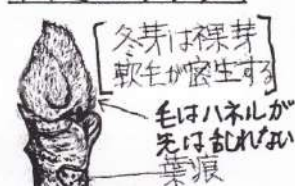 冬芽は裸芽
軟毛が密生する
毛はハネルが
先は乱れない
葉痕